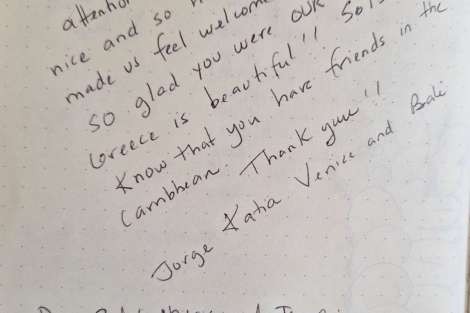 attention
nice and so
made us feel welcome
so glad you were our
Greece is beautiful!!
Know that you have friends in the
Carribhean. Thank you!!
Jorge Katia Venice and Bali